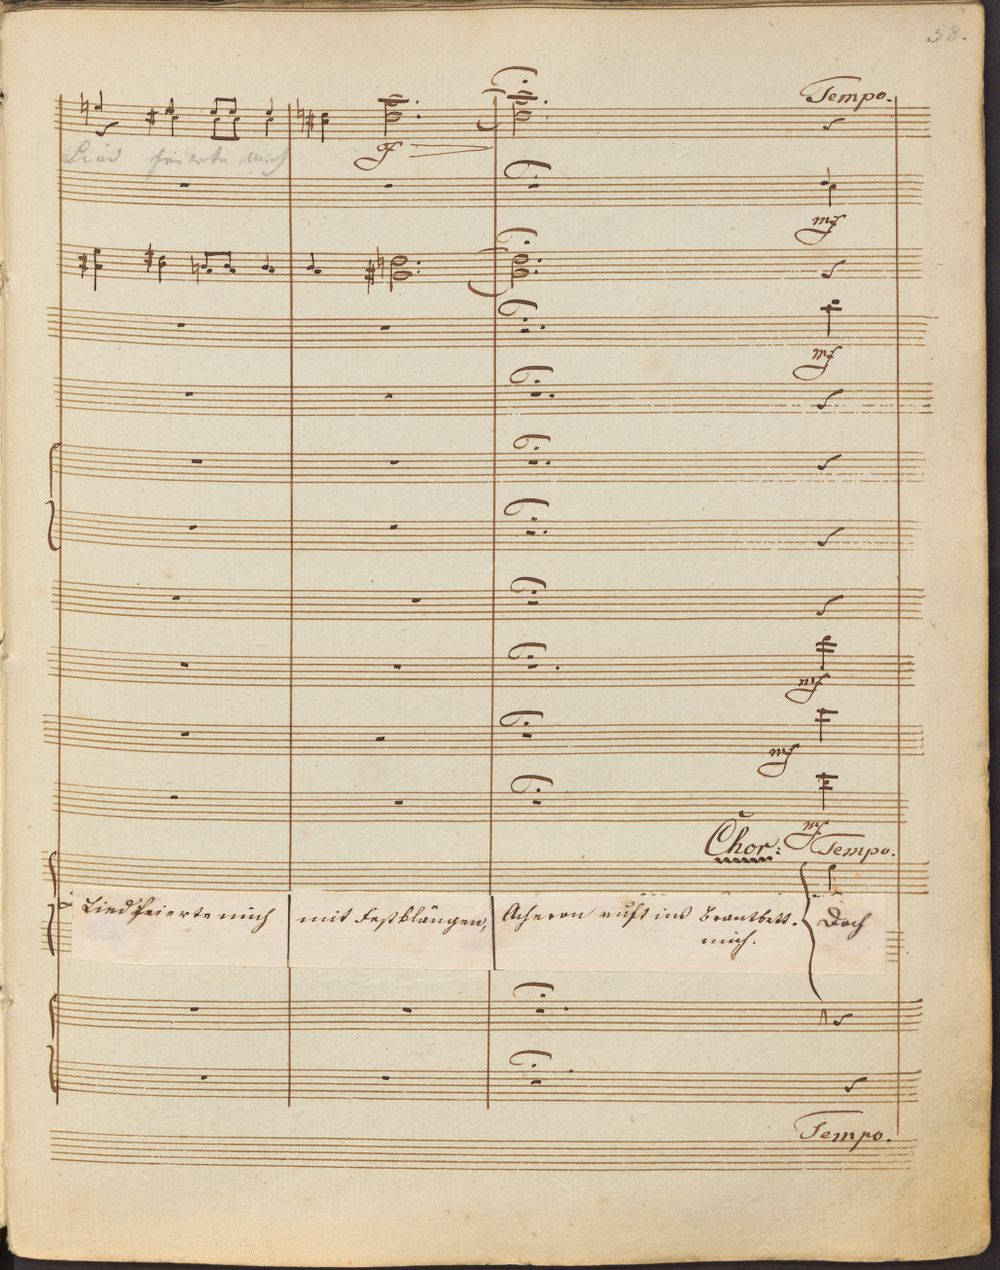 58.
Tempo.
Lied feierte mich
sf
mf
mf
mf
mf
mf
Chor: Tempo.
Lied feierte mich mit Festklängen, Acheron ruft ins Brautbett. Doch
mich.
Tempo.